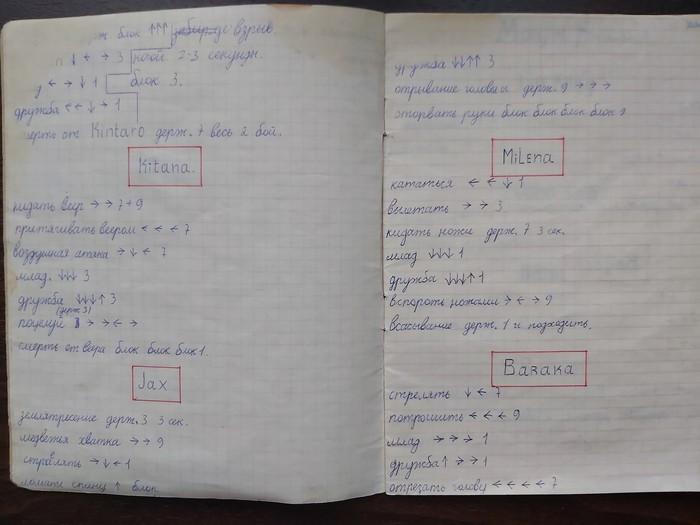 блок ↑↑↑ взрыв.
↓ ← → 3 ной 2-3 секунди.
← → ↓ 1 блок 3.
дружба ← ← ↓ → 1
смерть от Kintaro держ. 7 весь 2 бой.
Kitana.
кидать веер → → 7 + 9
притягивать веером ← ← ← 7
воздушная атака → ↓ ← 7
млад. ↓↓↓ 3
дружба ↓↓↓↑ 3
(держ 3)
поцелуй → → ← →
смерть от веера блок блок блок 1.
Jax
землятресение держ. 3 3 сек.
медвежья хватка → → 9
стрелять → ↓ ← 1
ломать спину ↑ блок
дружба ↓↓↑↑ 3
отрывание головы держ. 9 → → →
оторвать руки блок блок блок блок 9
MiLena
кататься ← ← ↓ 1
вылетать → → 3
кидать ножи держ. 7 3 сек.
млад ↓↓↓ 1
дружба ↓↓↓↑ 1
вспороть ножами → ← → 9
всасывание держ. 1 и подходить.
Baraka
стрелять ↓ ← 7
потрошить ← ← ← 9
млад → → → 1
дружба ↑ → → 1
отрезать голову ← ← ← ← 7